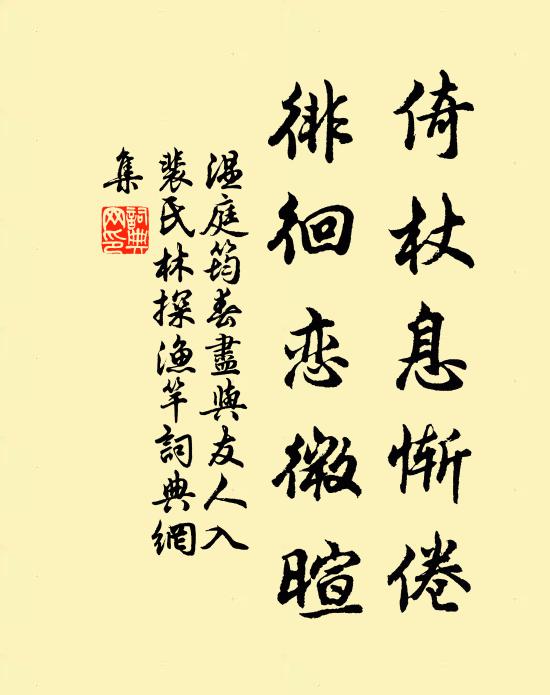 倚杖息慚倦
徘徊恋微暄
温庭筠春盡與友人入
裴氏林探漁竿詞典網
集
詞典網印